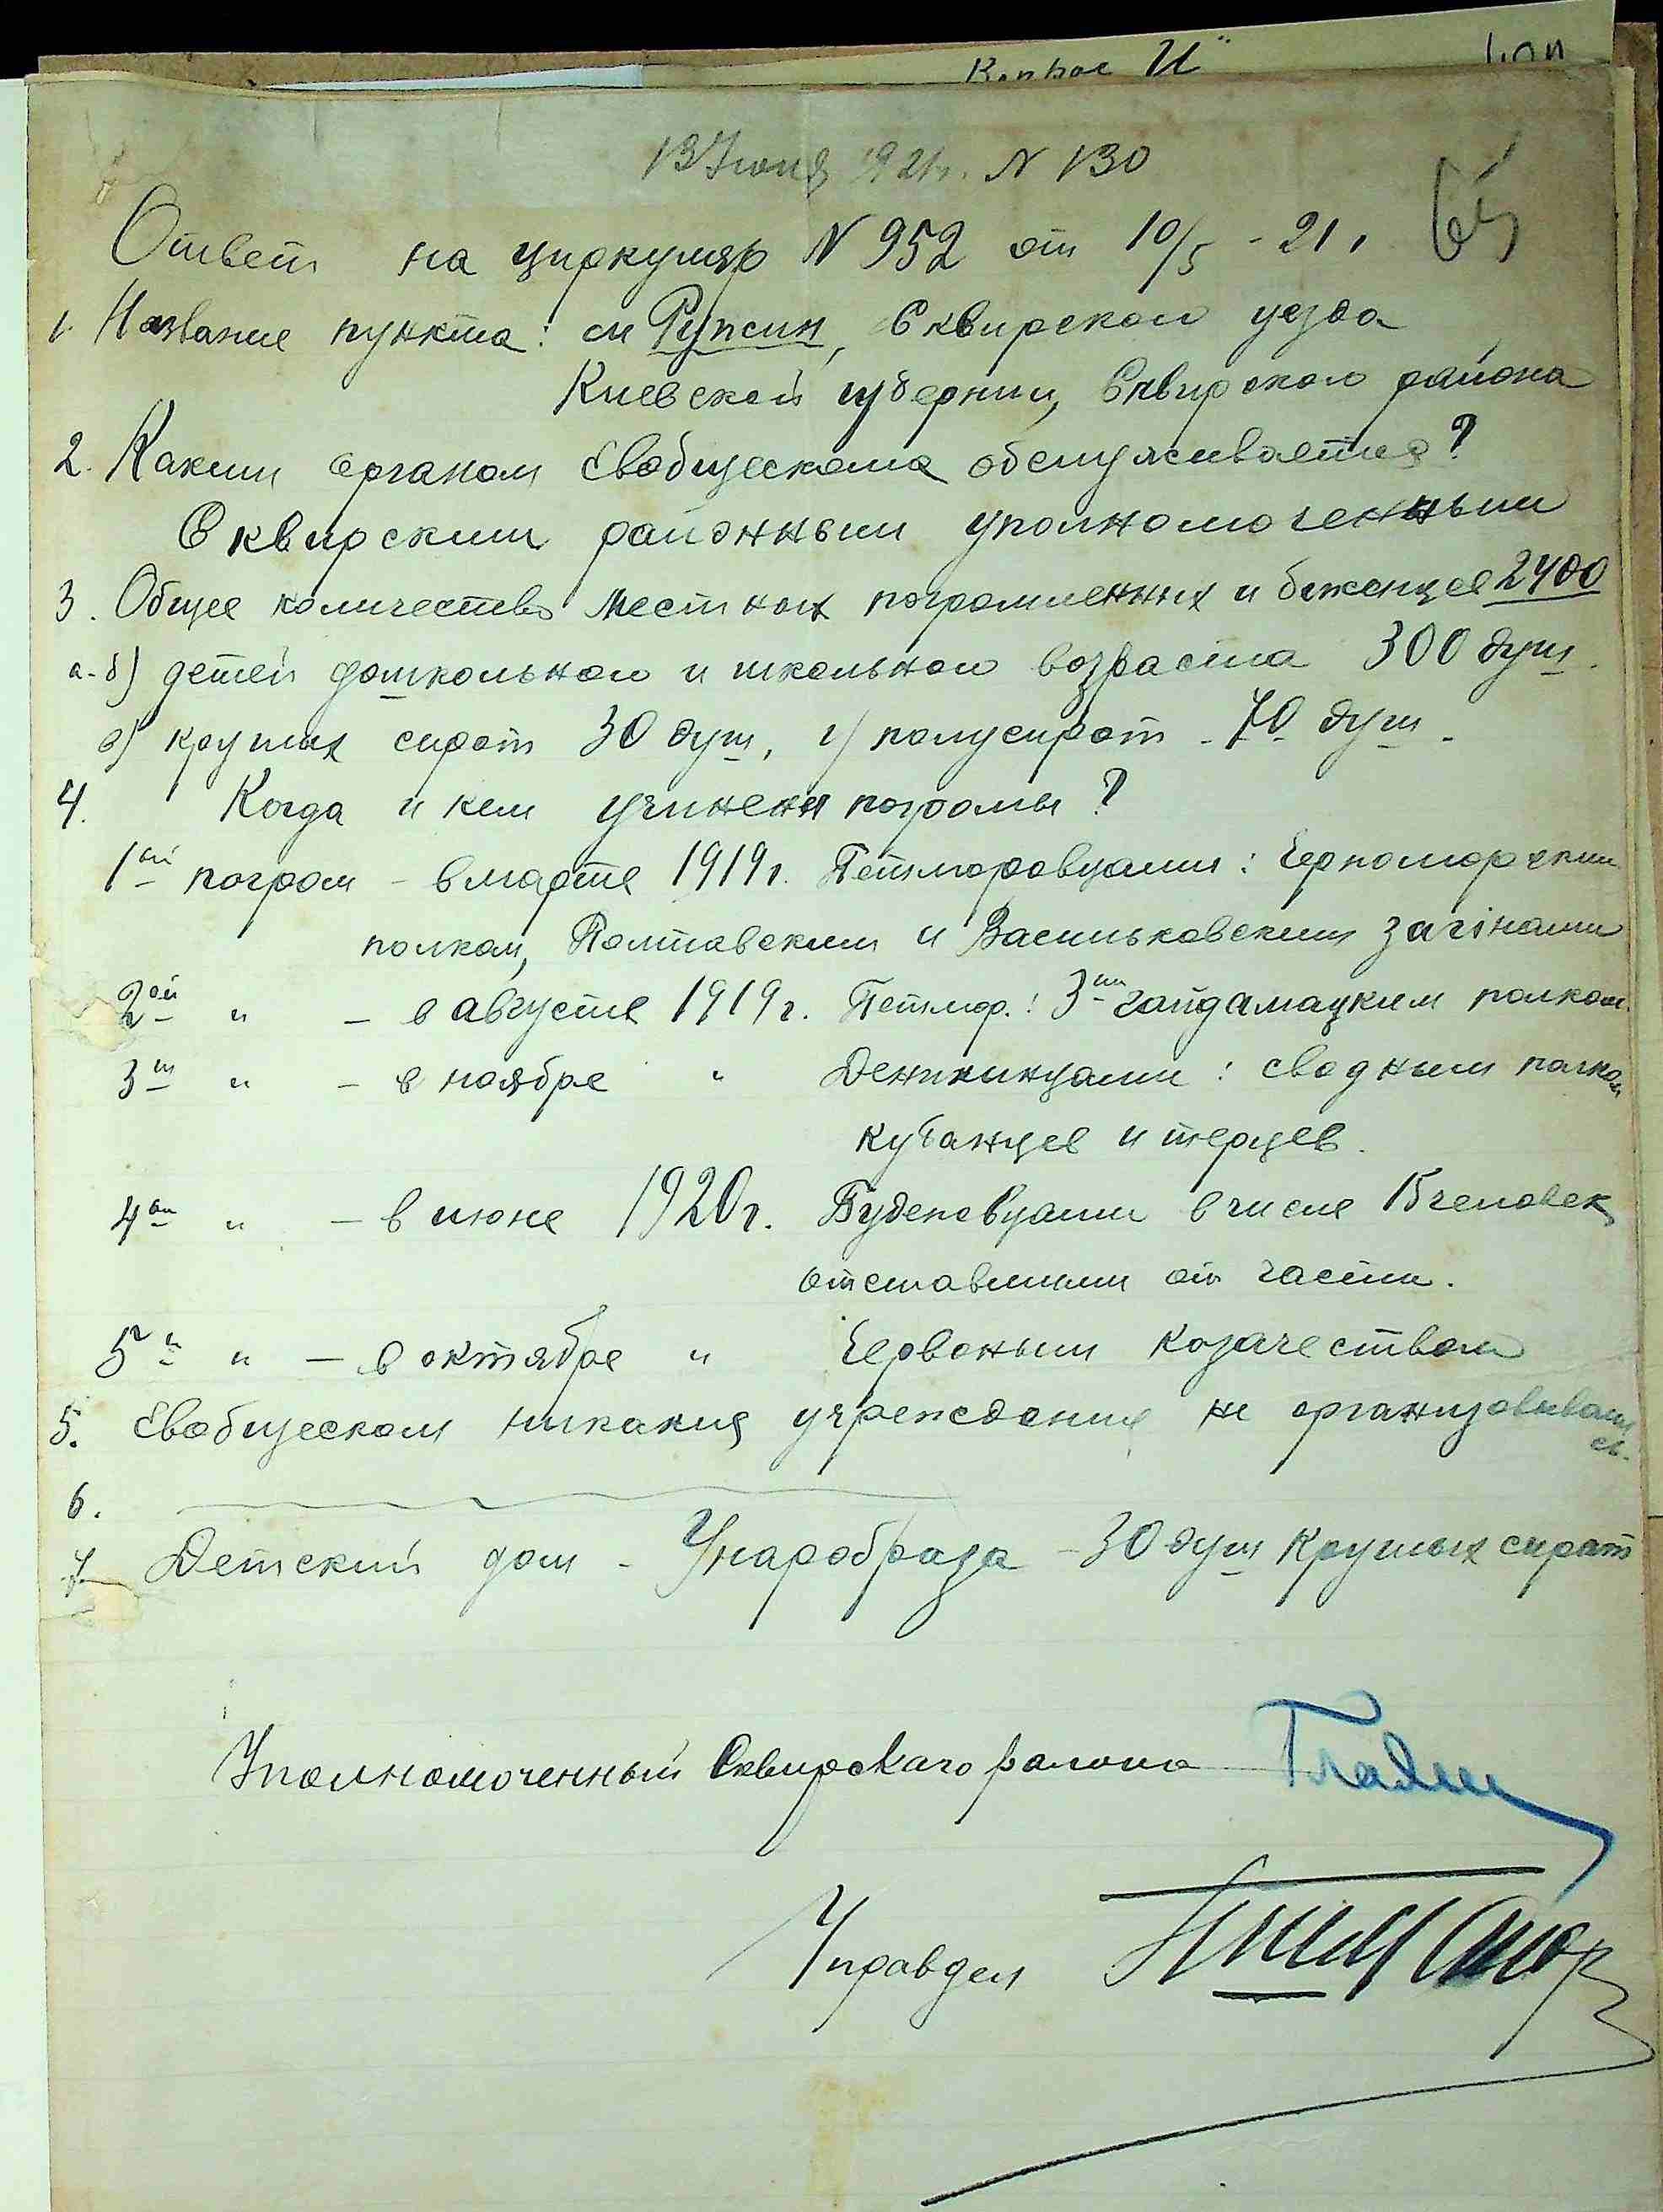 "И"
13 Июня 1921 г. N 130
Ответ на циркуляр N 952 от 10/5 - 21 г.
1. Название пункта: м Ружин, Сквирского уезда
Киевской губернии, Сквирского района
2. Каким органом Евобщесткома обслуживается?
Сквирским районным уполномоченным
3. Общее количество местных погромленных и беженцев 2400
а-б) детей дошкольного и школьного возраста 300 душ.
в) круглых сирот 30 душ, г) полусирот - 70 душ.
4. Когда и кем учинены погромы?
1ый погром - в марте 1919 г. Петлюровцами: Черноморским
полком, Полтавским и Васильковским загінами
2ой " - в августе 1919 г. Петлюр.: 3им гайдамацким полком.
3ий " - в ноябре " Деникинцами: сводным полком
кубанцев и терцев.
4ый " - в июне 1920 г. Буденовцами в числе 15 человек,
отставшими от части.
5й " - в октябре " Червоным козачеством
5. Евобщестком никаких учреждений не организовывались.
6.
7. Детский дом - Унаробраза - 30 душ круглых сирот
Уполномоченный Сквирскаго района
Управдел